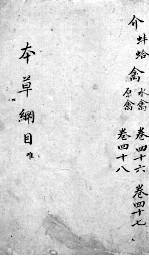 介 蚌蛤 卷四十六
禽 水禽 卷四十七
原禽 卷四十八
本草綱目